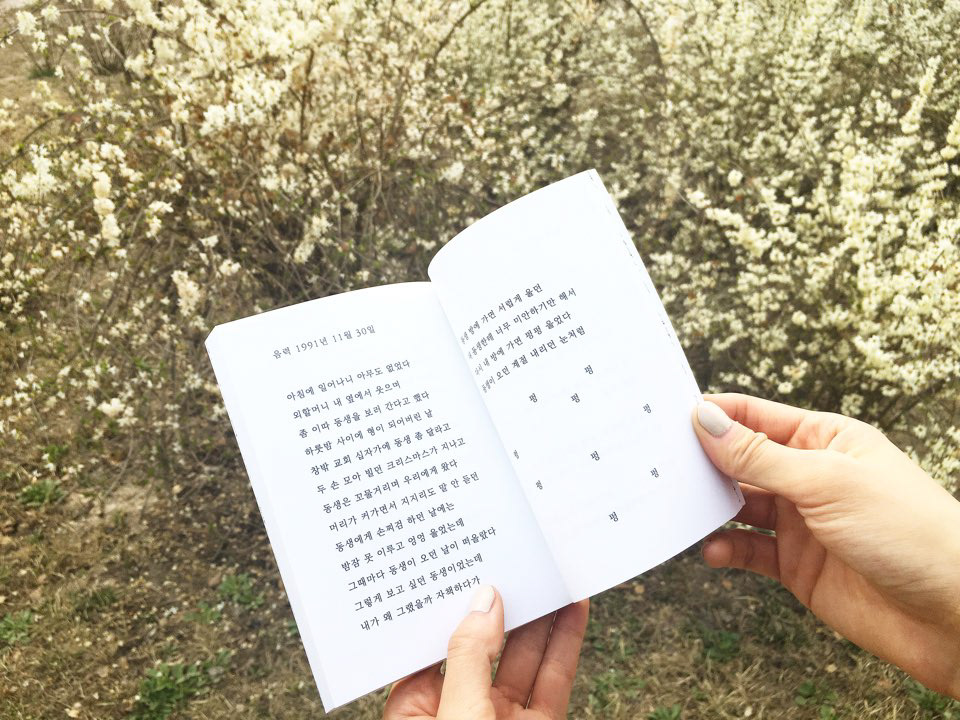 음력 1991년 11월 30일
아침에 일어나니 아무도 없었다
외할머니 내 옆에서 웃으며
좀 이따 동생을 보러 간다고 했다
하룻밤 사이에 형이 되어버린 날
창밖 교회 십자가에 동생 좀 달라고
두 손 모아 빌던 크리스마스가 지나고
동생은 꼬물거리며 우리에게 왔다
머리가 커가면서 지지리도 말 안 듣던
동생에게 손찌검 하던 날에는
밤잠 못 이루고 엉엉 울었는데
그때마다 동생이 오던 날이 떠올랐다
그렇게 보고 싶던 동생이었는데
내가 왜 그랬을까 자책하다가
방에 가면 서럽게 울던
동생한테 너무 미안하기만 해서
내 방에 가면 펑펑 울었다
동생이 오던 계절 내리던 눈처럼
펑
펑 펑
펑
펑
펑
펑
펑